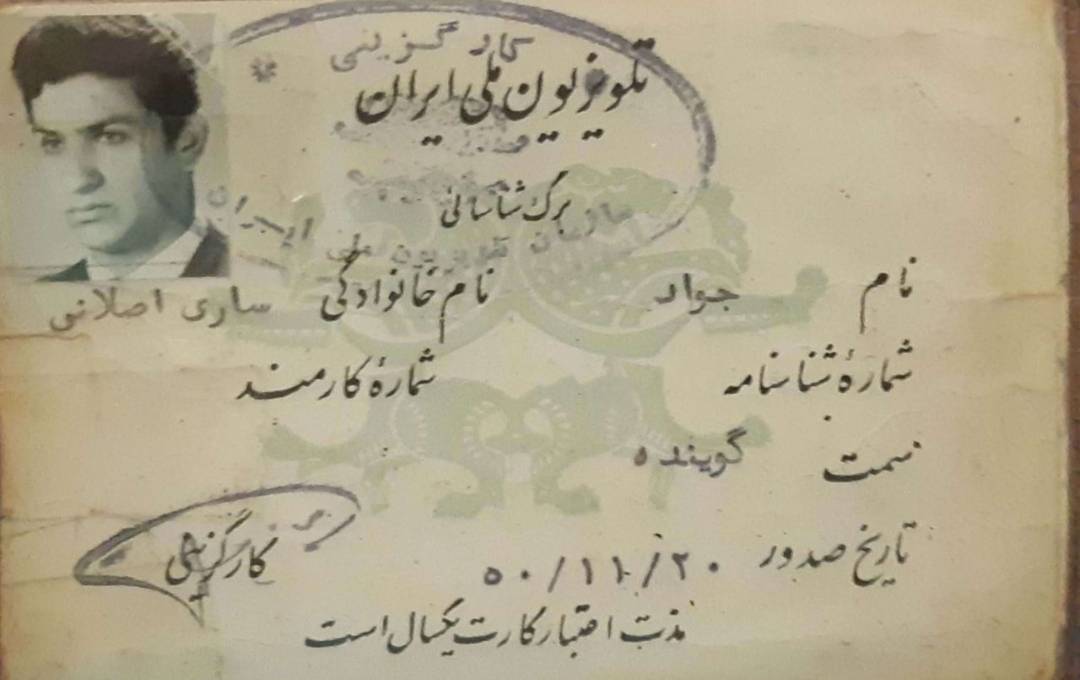 کارگزینی
تلویزیون ملی ایران
برگ شناسائی
سازمان تلویزیون ملی ایران
نام جواد نام خانوادگی ساری اصلانی
شمارهٔ شناسنامه شمارهٔ کارمند
سمت گوینده
تاریخ صدور ۵۰/۱۱/۲۰ کارگزینی
مدت اعتبار کارت یکسال است